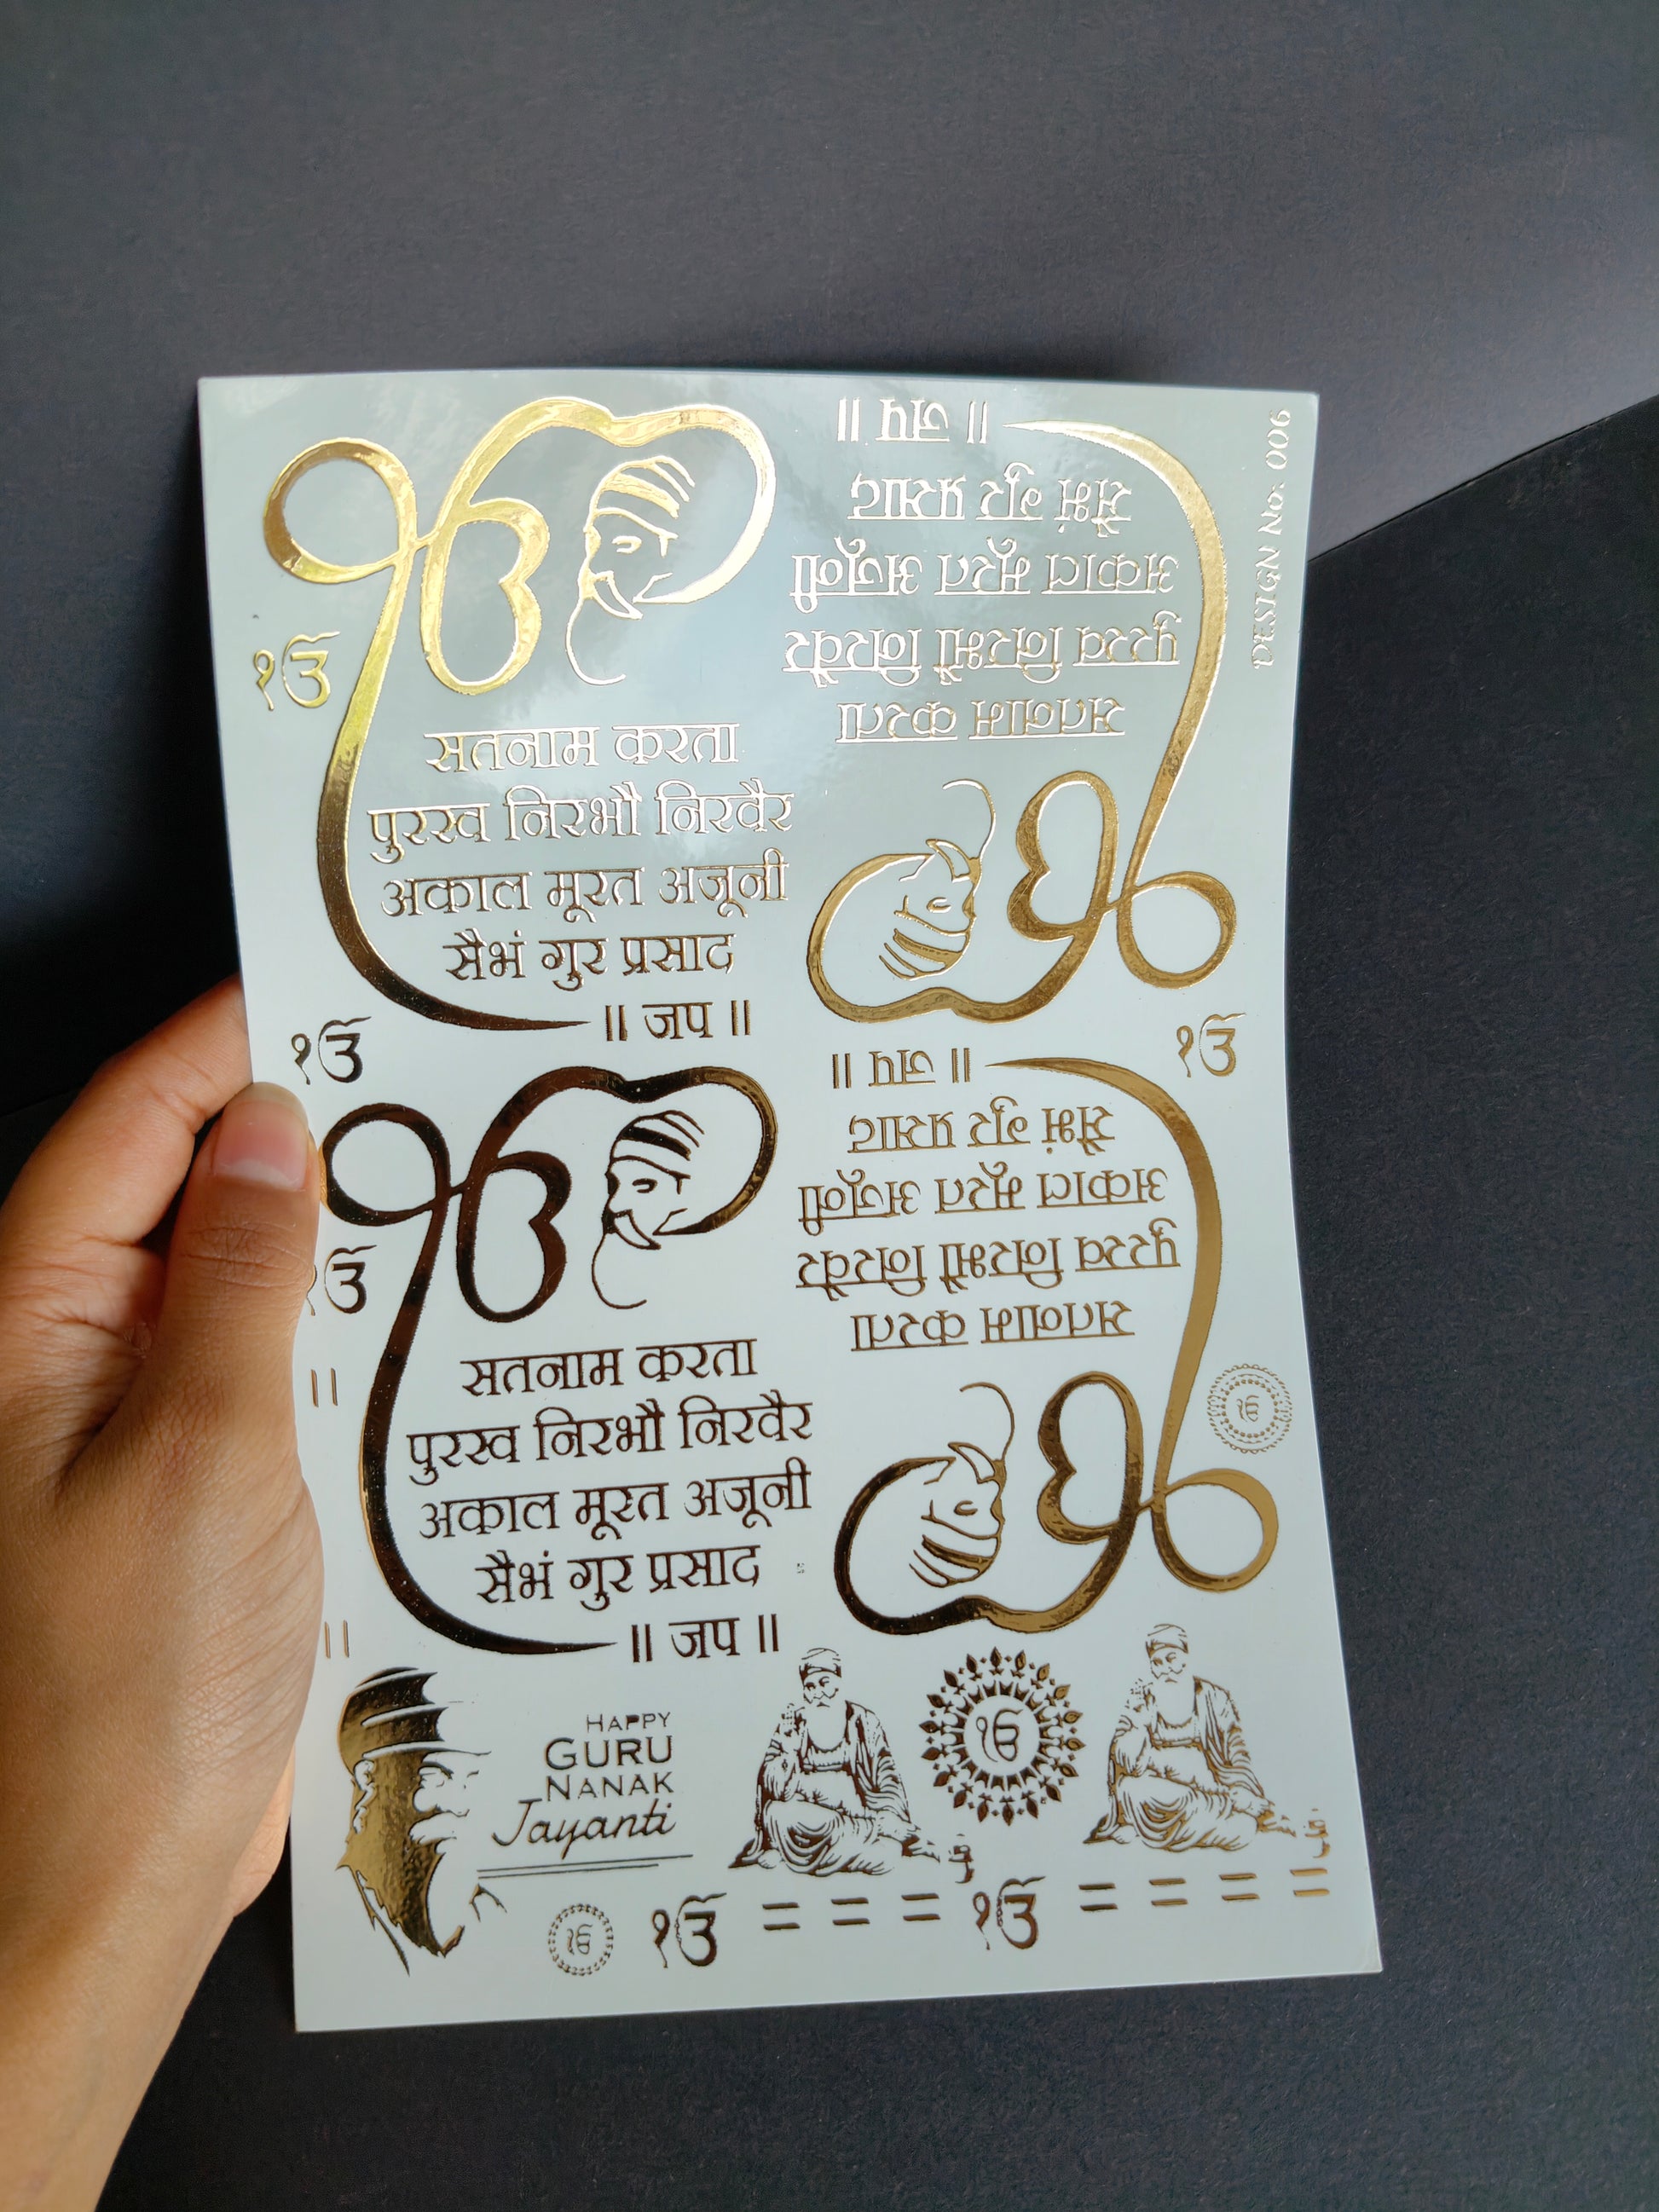 ੧ੴ
सतनाम करता
पुरख निरभौ निरवैर
अकाल मूरत अजूनी
सैभं गुर प्रसाद
॥ जप ॥
सतनाम करता
पुरख निरभौ निरवैर
अकाल मूरत अजूनी
सैभं गुर प्रसाद
॥ जप ॥
DESIGN No: 006
ੴ
ੴ
ੴ
ੴ
सतनाम करता
पुरख निरभौ निरवैर
अकाल मूरत अजूनी
सैभं गुर प्रसाद
॥ जप ॥
ੴ
सतनाम करता
पुरख निरभौ निरवैर
अकाल मूरत अजूनी
सैभं गुर प्रसाद
॥ जप ॥
ੴ
ੴ
ੴ
HAPPY
GURU
NANAK
Jayanti
ੴ
ੴ
ੴ ੴ